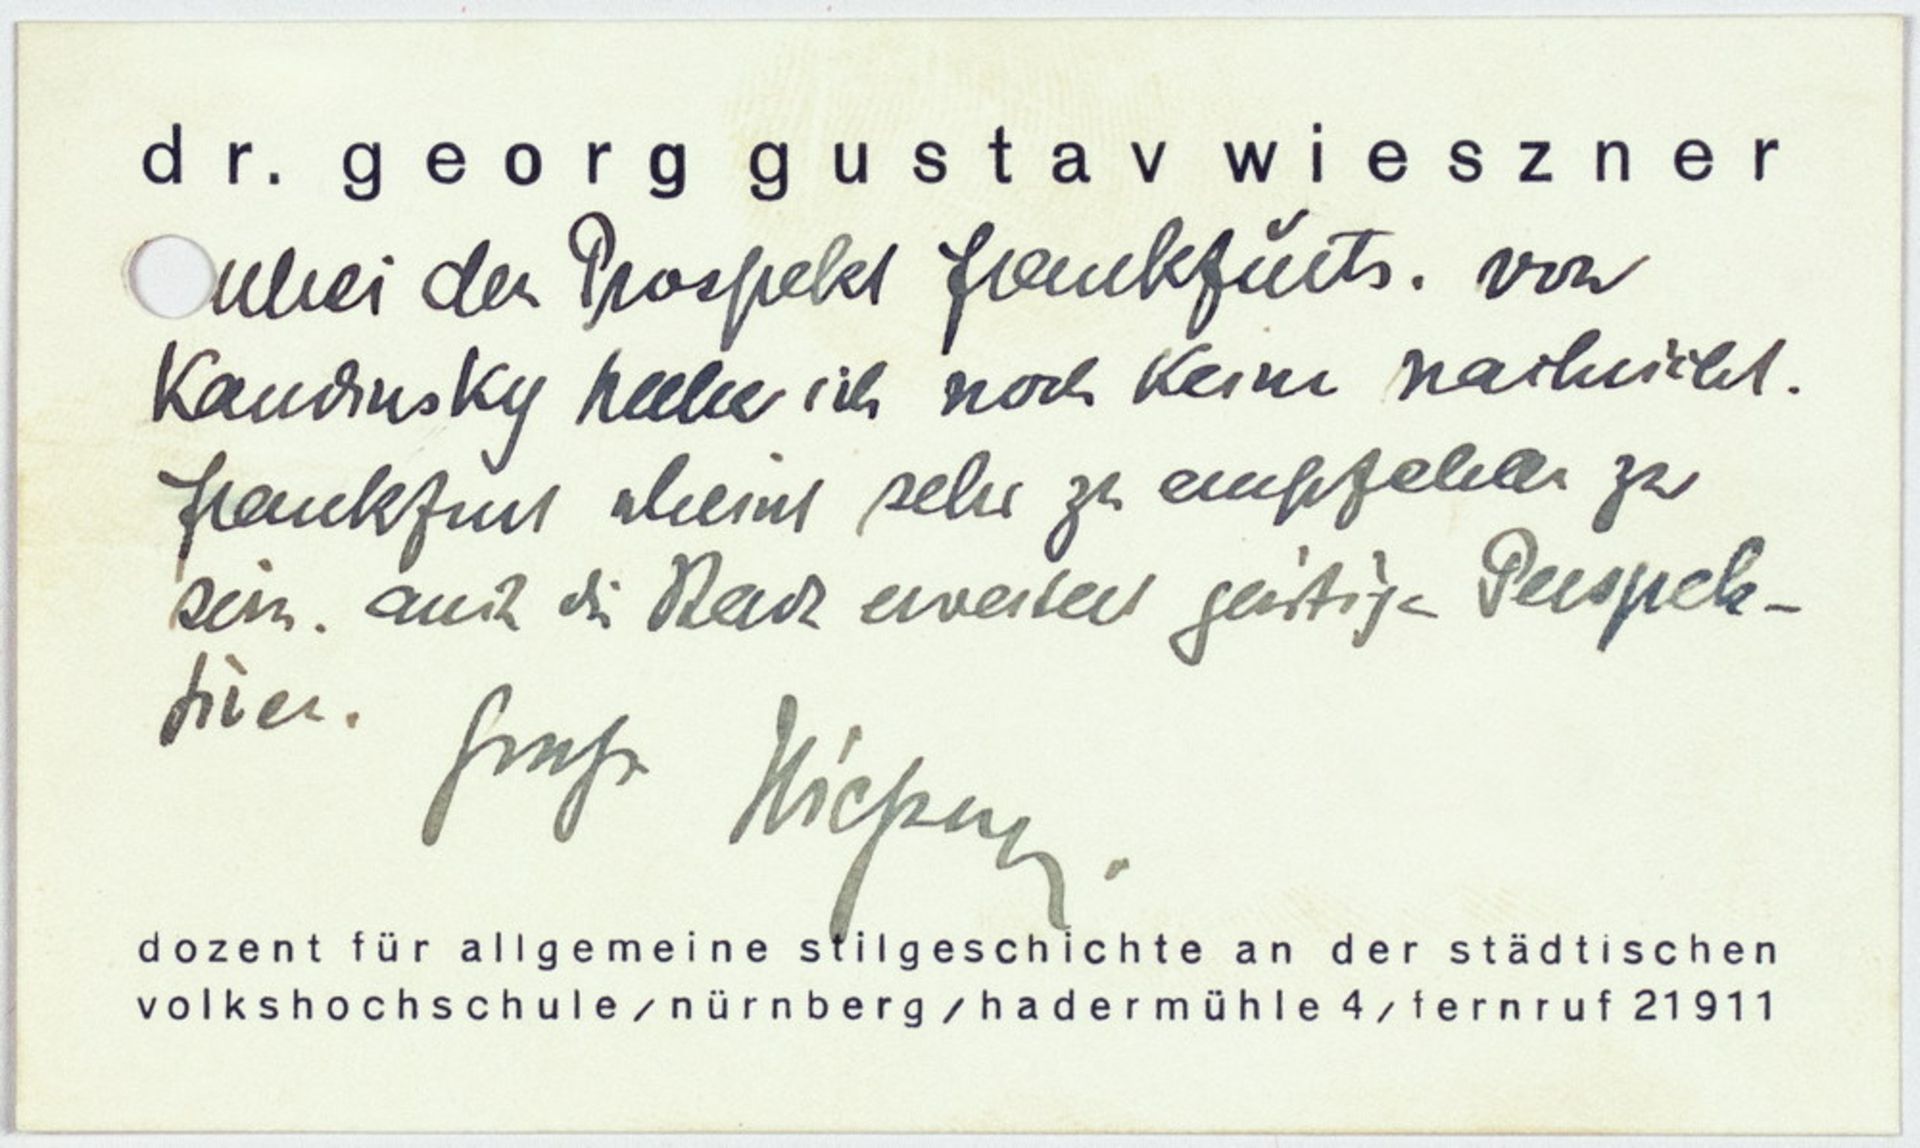 dr. georg gustav wieszner
anbei den Prospekt frankfurts. von
Kandinsky habe ich noch keine nachricht.
frankfurt scheint sehr zu empfehlen zu
sein. auch die Stadt erweitert geistige Perspek-
tiven.
Gruß Wießner.
dozent für allgemeine stilgeschichte an der städtischen
volkshochschule/nürnberg/hadermühle 4/fernruf 21911